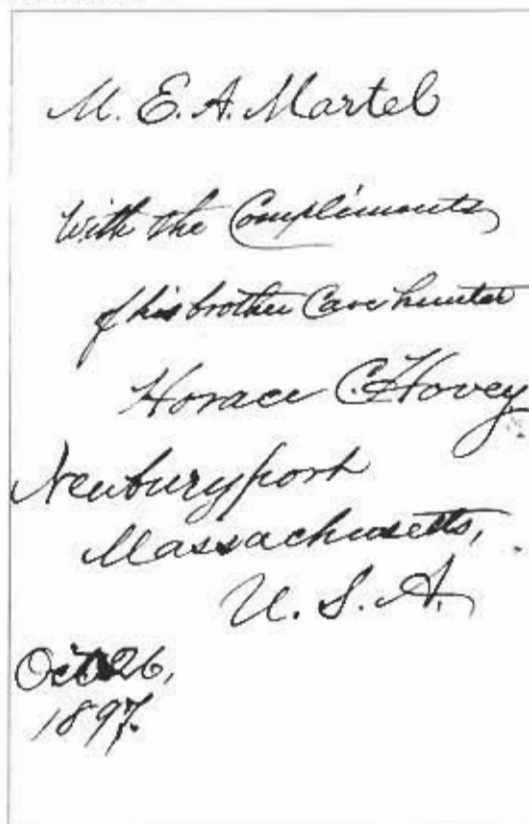 M. E. A. Martel
With the Compliments
of his brother Cave hunter
Horace C. Hovey
Newburyport
Massachusetts,
U. S. A.
Oct. 26,
1897.